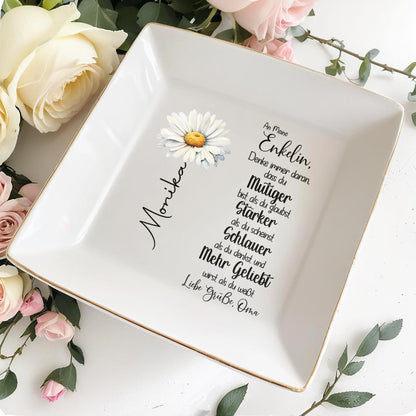 Monika
An Meine
Enkelin,
Denke immer daran,
dass du
Mutiger
bist als du glaubst
Stärker
als du scheinst
Schlauer
als du denkst und
Mehr Geliebt
wirst als du weißt
Liebe Grüße, Oma